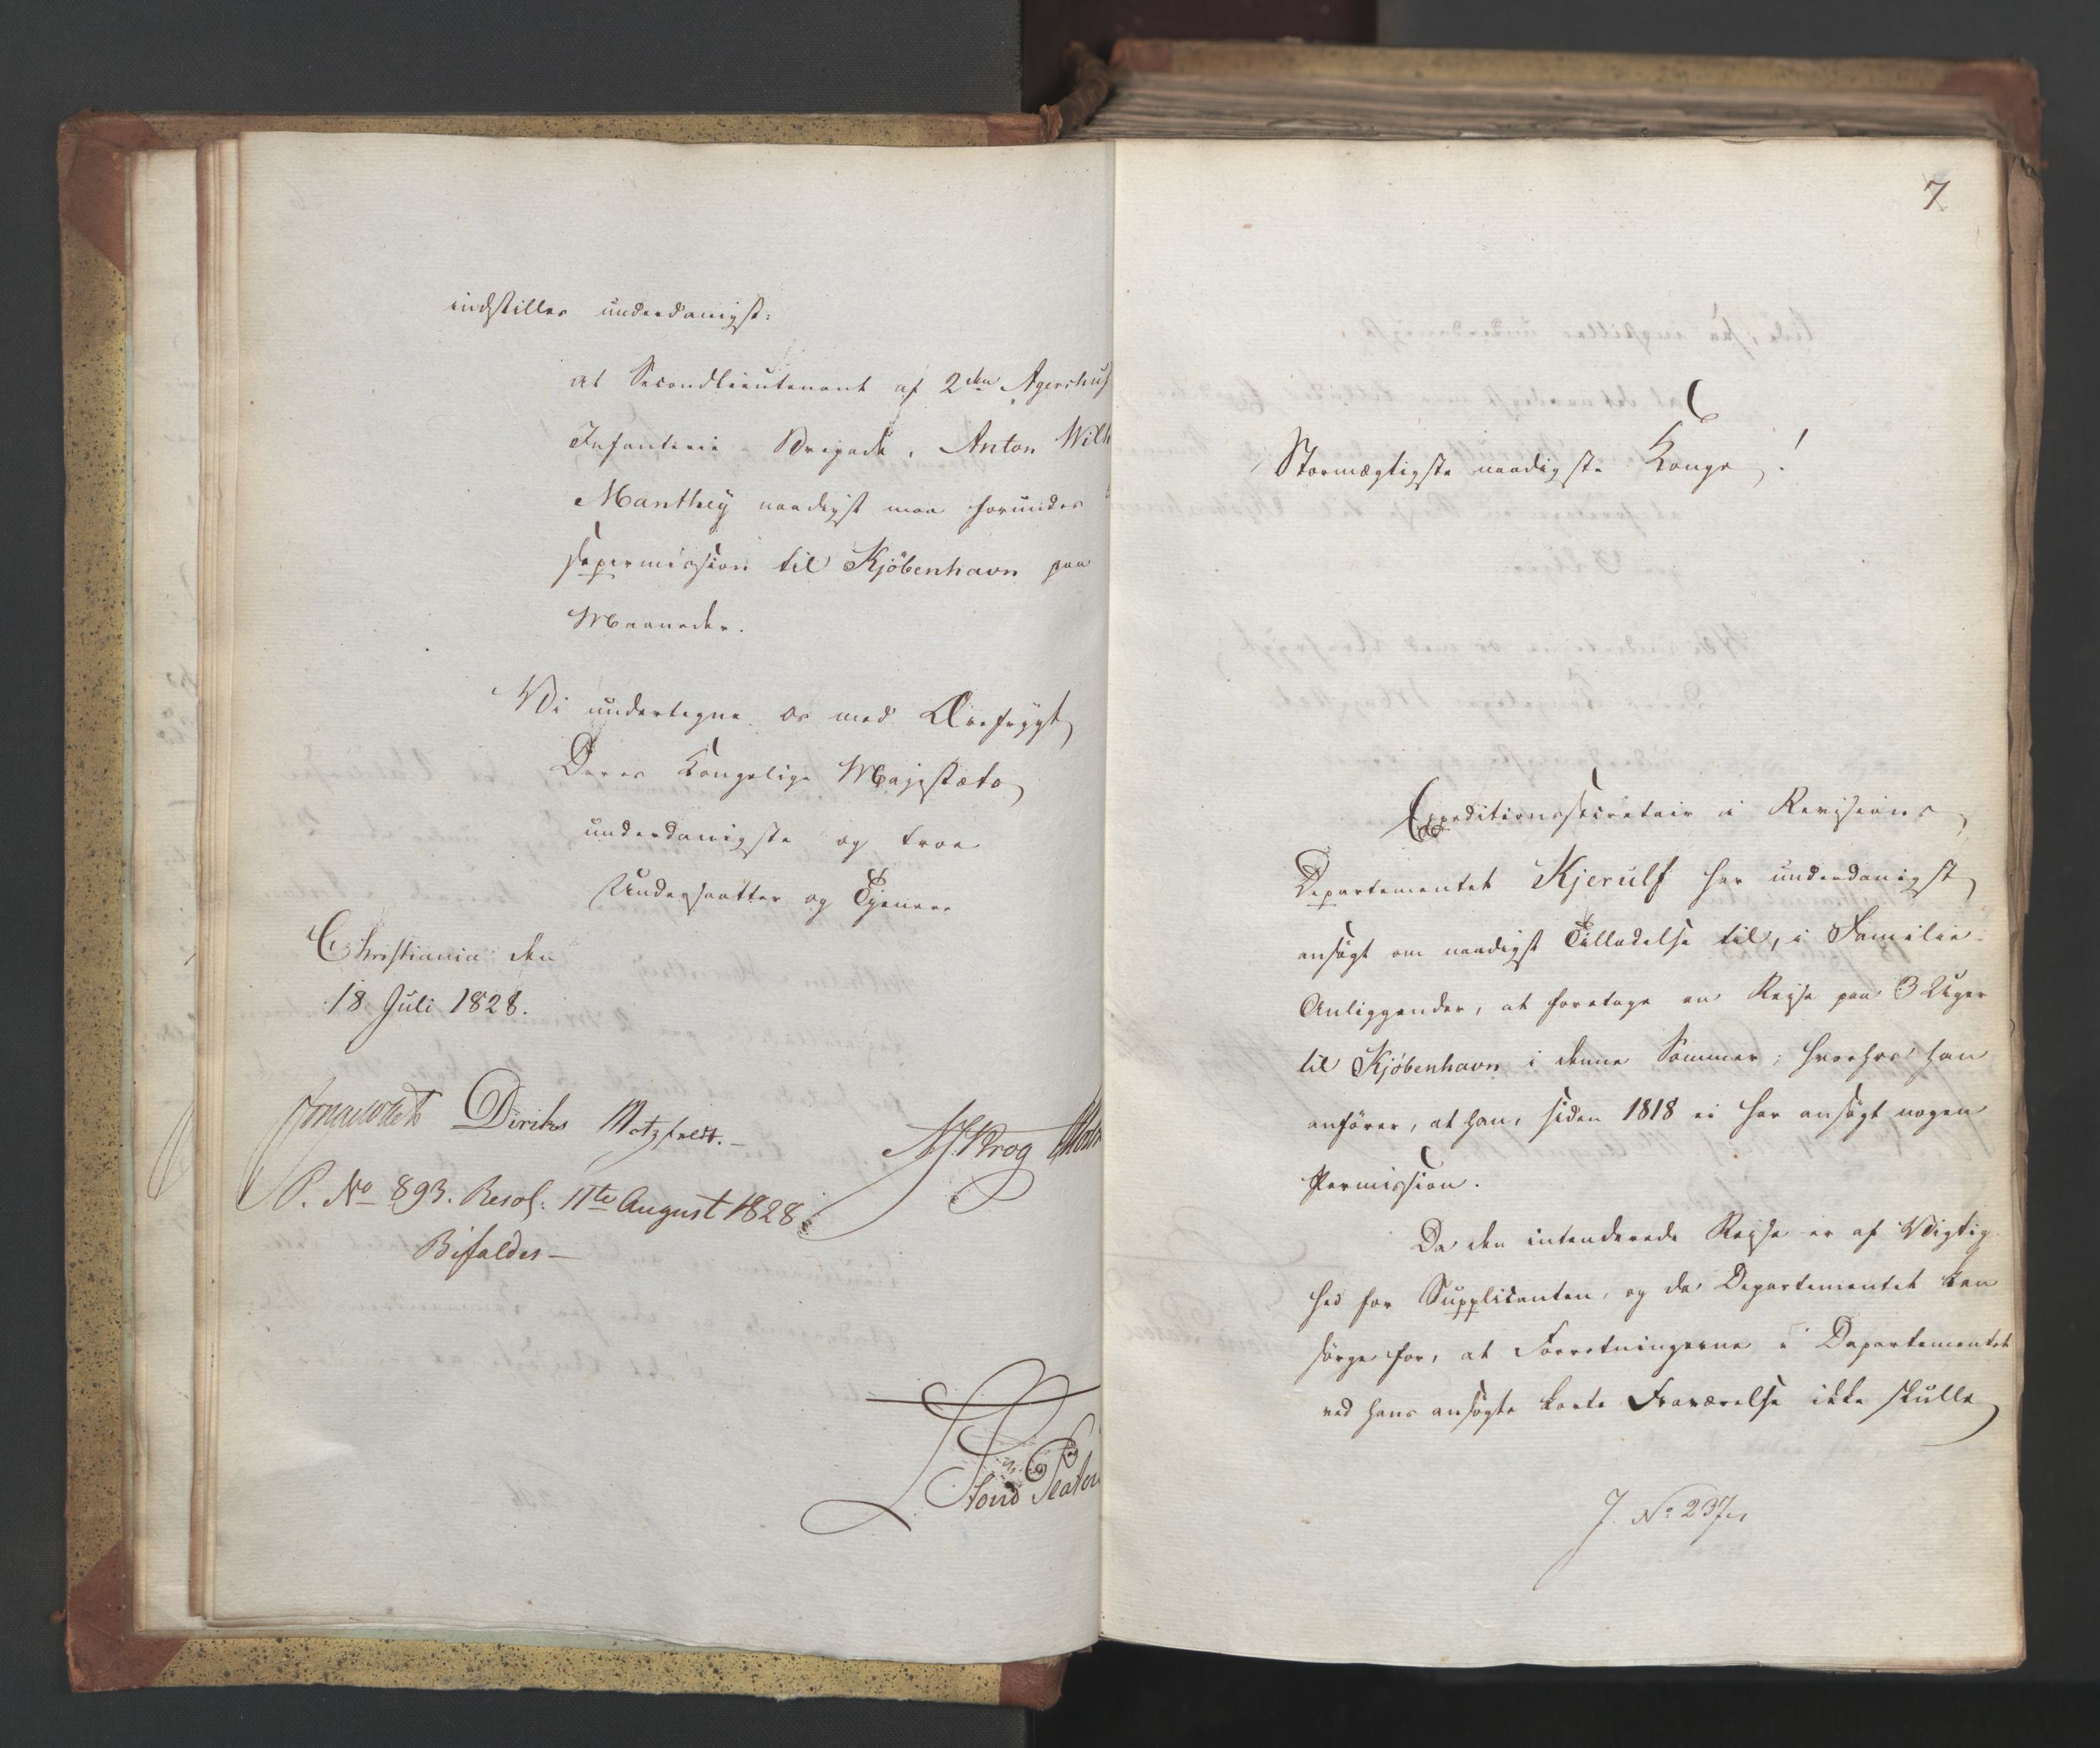 indstilles underdanigst:
at Secondlieutenant af 2den Agershus
Infanterie-Brigade, Anton Wilh
Manthey naadigst maa forundes
sepermission til Kjöbenhavn paa
Maaneder.
Vi undertegne os med Ærefrygt
Deres Kongelige Majestæts
underdanigste og troe
Undersaatter og Tjenere
Christiania den
18 Juli 1828.
Diriks Motzfeldt. Krog
P. No 893. Resol: 11te August 1828
Bifaldes
7
Stormægtigste naadigste Konge!
Expeditionssecretair i Revisions
Departementet Kjerulf har underdanigst
ansögt om naadigst Tilladelse til, i Familie-
Anliggender, at foretage en Rejse paa 3 Uger
til Kjöbenhavn i denne Sommer; hvorhos han
anförer, at han, siden 1818 ei har ansögt nogen
Permission.
Da den intenderede Rejse er af Vigtig
hed for Supplicanten, og da Departementet kan
sörge for, at Forretningerne i Departementet
ved hans ansögte korte Fraværelse ikke skulle
J. No 237